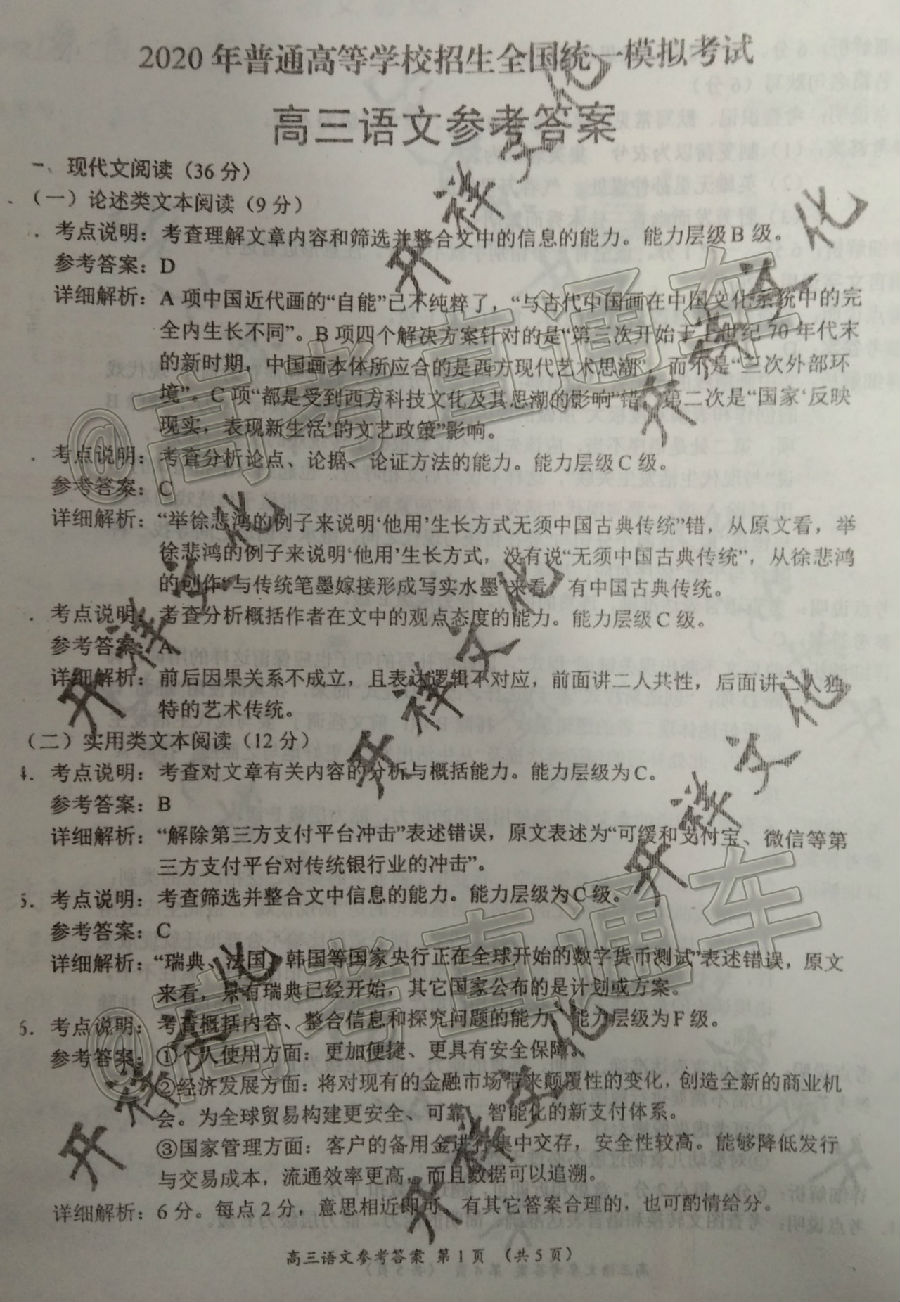 2020年普通高等学校招生全国统一模拟考试
高三语文参考答案
一、现代文阅读（36分）
（一）论述类文本阅读（9分）
．考点说明：考查理解文章内容和筛选并整合文中的信息的能力。能力层级B级。
参考答案：D
详细解析：A项中国近代画的“自能”已不纯粹了，“与古代中国画在中国文化系统中的完
全内生长不同”。B项四个解决方案针对的是“第三次开始于上世纪70年代末
的新时期，中国画本体所应合的是西方现代艺术思潮”，而不是“三次外部环
境”。C项“都是受到西方科技文化及其思潮的影响”错，第二次是“国家‘反映
现实，表现新生活’的文艺政策”影响。
．考点说明：考查分析论点、论据、论证方法的能力。能力层级C级。
参考答案：C
详细解析：“举徐悲鸿的例子来说明‘他用’生长方式无须中国古典传统”错，从原文看，举
徐悲鸿的例子来说明‘他用’生长方式，没有说“无须中国古典传统”，从徐悲鸿
的创作“与传统笔墨嫁接形成写实水墨”来看，有中国古典传统。
．考点说明：考查分析概括作者在文中的观点态度的能力。能力层级C级。
参考答案：A
详细解析：前后因果关系不成立，且表达逻辑不对应，前面讲二人共性，后面讲二人独
特的艺术传统。
（二）实用类文本阅读（12分）
4．考点说明：考查对文章有关内容的分析与概括能力。能力层级为C。
参考答案：B
详细解析：“解除第三方支付平台冲击”表述错误，原文表述为“可缓和支付宝、微信等第
三方支付平台对传统银行业的冲击”。
5．考点说明：考查筛选并整合文中信息的能力。能力层级为C级。
参考答案：C
详细解析：“瑞典、法国、韩国等国家央行正在全球开始的数字货币测试”表述错误，原文
来看，只有瑞典已经开始，其它国家公布的是计划或方案。
6．考点说明：考查概括内容、整合信息和探究问题的能力。能力层级为F级。
参考答案：①个人使用方面：更加便捷、更具有安全保障。
②经济发展方面：将对现有的金融市场带来颠覆性的变化，创造全新的商业机
会。为全球贸易构建更安全、可靠、智能化的新支付体系。
③国家管理方面：客户的备用金进行集中交存，安全性较高。能够降低发行
与交易成本，流通效率更高，而且数据可以追溯。
详细解析：6分。每点2分，意思相近即可，有其它答案合理的，也可酌情给分。
高三语文参考答案 第1页 （共5页）
@高考直通车
@高考直通车
开祥文化
开祥文化
开祥文化
开祥文化
开祥文化
开祥文化
开祥文化